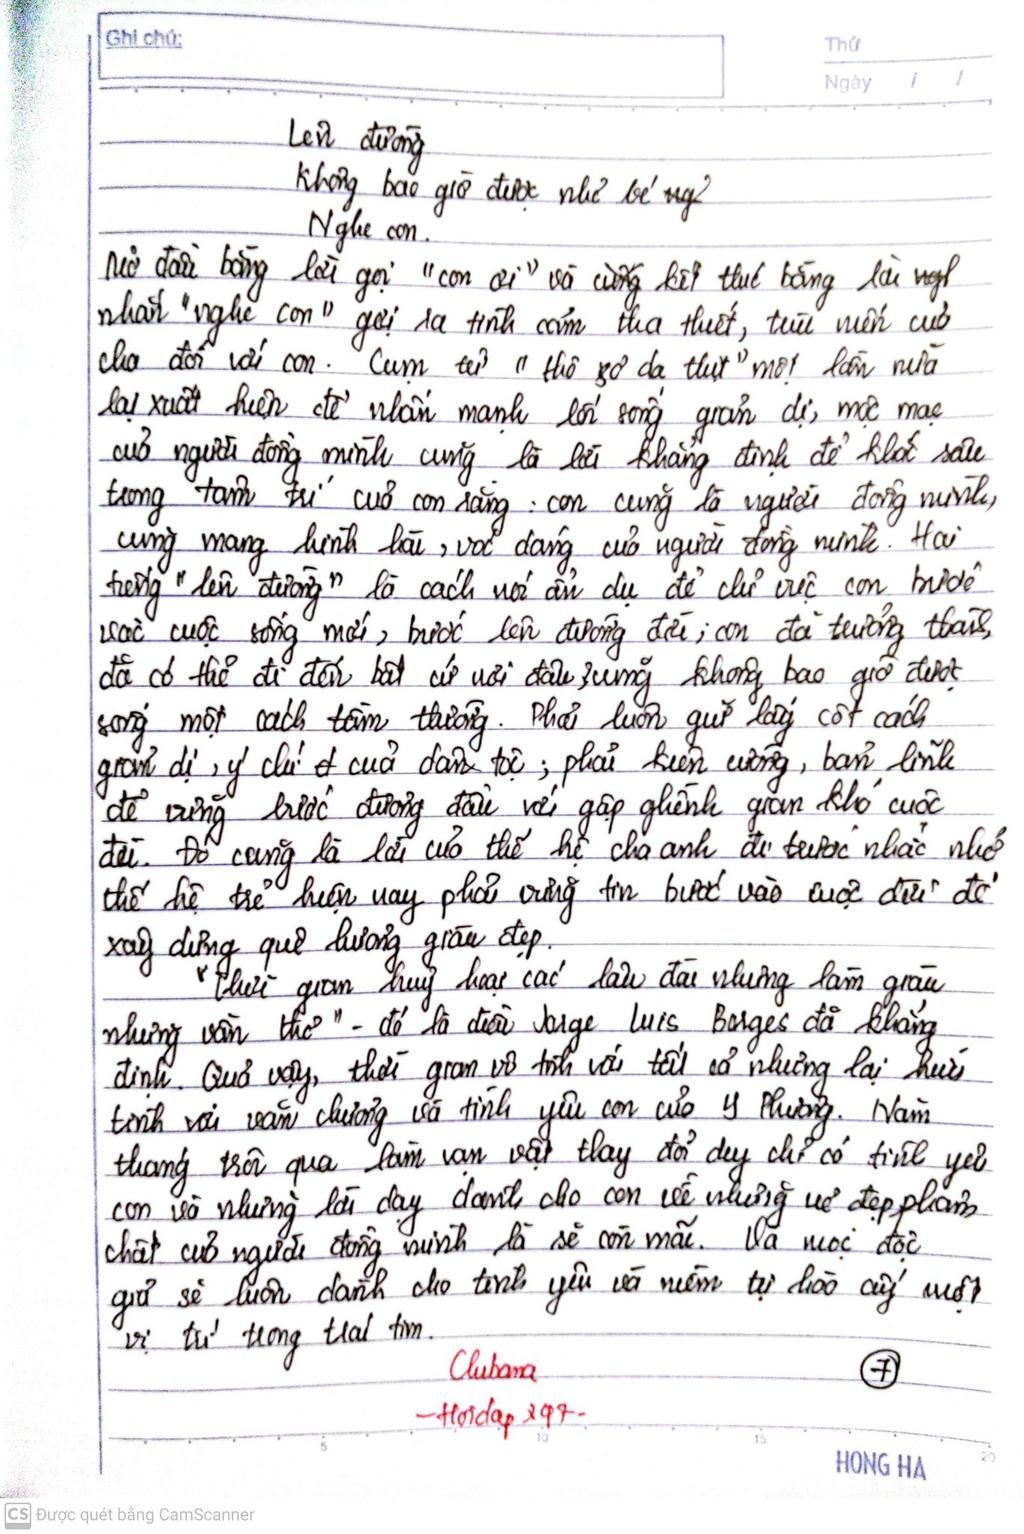 Ghi chú:
Thứ
Ngày / /
Lên đường
Không bao giờ được nhỏ bé
Nghe con.
Mở đầu bằng lời gọi "con ơi" và cũng kết thúc bằng lời
nhắn "nghe con" gợi ra tình cảm tha thiết, trìu mến của
cha đối với con. Cụm từ "thô sơ da thịt" một lần nữa
lại xuất hiện để nhấn mạnh lối sống giản dị, mộc mạc
của người đồng mình cũng là lời khẳng định để khắc sâu
trong tâm trí của con rằng: con cũng là người đồng mình,
cũng mang hình hài, vóc dáng của người đồng mình. Hai
tiếng "lên đường" là cách nói ẩn dụ để chỉ việc con bước
vào cuộc sống mới, bước lên đường đời; con đã trưởng thành,
đã có thể đi đến bất cứ nơi đâu, cũng không bao giờ được
sống một cách tầm thường. Phải luôn giữ lấy cốt cách
giản dị, ý chí của dân tộc; phải kiên cường, bản lĩnh
để vững bước đương đầu với gập ghềnh gian khó cuộc
đời. Đó cũng là lời của thế hệ cha anh đi trước nhắc nhở
thế hệ trẻ hiện nay phải vững tin bước vào cuộc đời để
xây dựng quê hương giàu đẹp.
"Thời gian huỷ hoại các lâu đài nhưng làm giàu
những vần thơ" - đó là điều Jorge Luis Borges đã khẳng
định. Quả vậy, thời gian vô tình với tất cả nhưng lại hữu
tình với văn chương và tình yêu con của Y Phương. Năm
tháng trôi qua làm vạn vật thay đổi duy chỉ có tình yêu
con và những lời dạy dành cho con về những vẻ đẹp phẩm
chất của người đồng mình là sẽ còn mãi. Và mọi độc
giả sẽ luôn dành cho tình yêu và niềm tự hào ấy một
vị trí trong trái tim.
Clubana
-Hoidap247-
7
5 10 15 20
HONG HA
CS Được quét bằng CamScanner